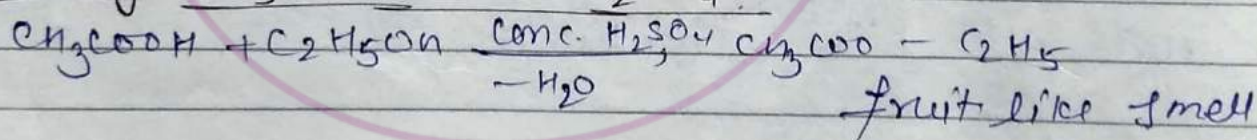 CH3COOH + C2H5OH conc. H2SO4 CH3COO - C2H5
- H2O
fruit like smell